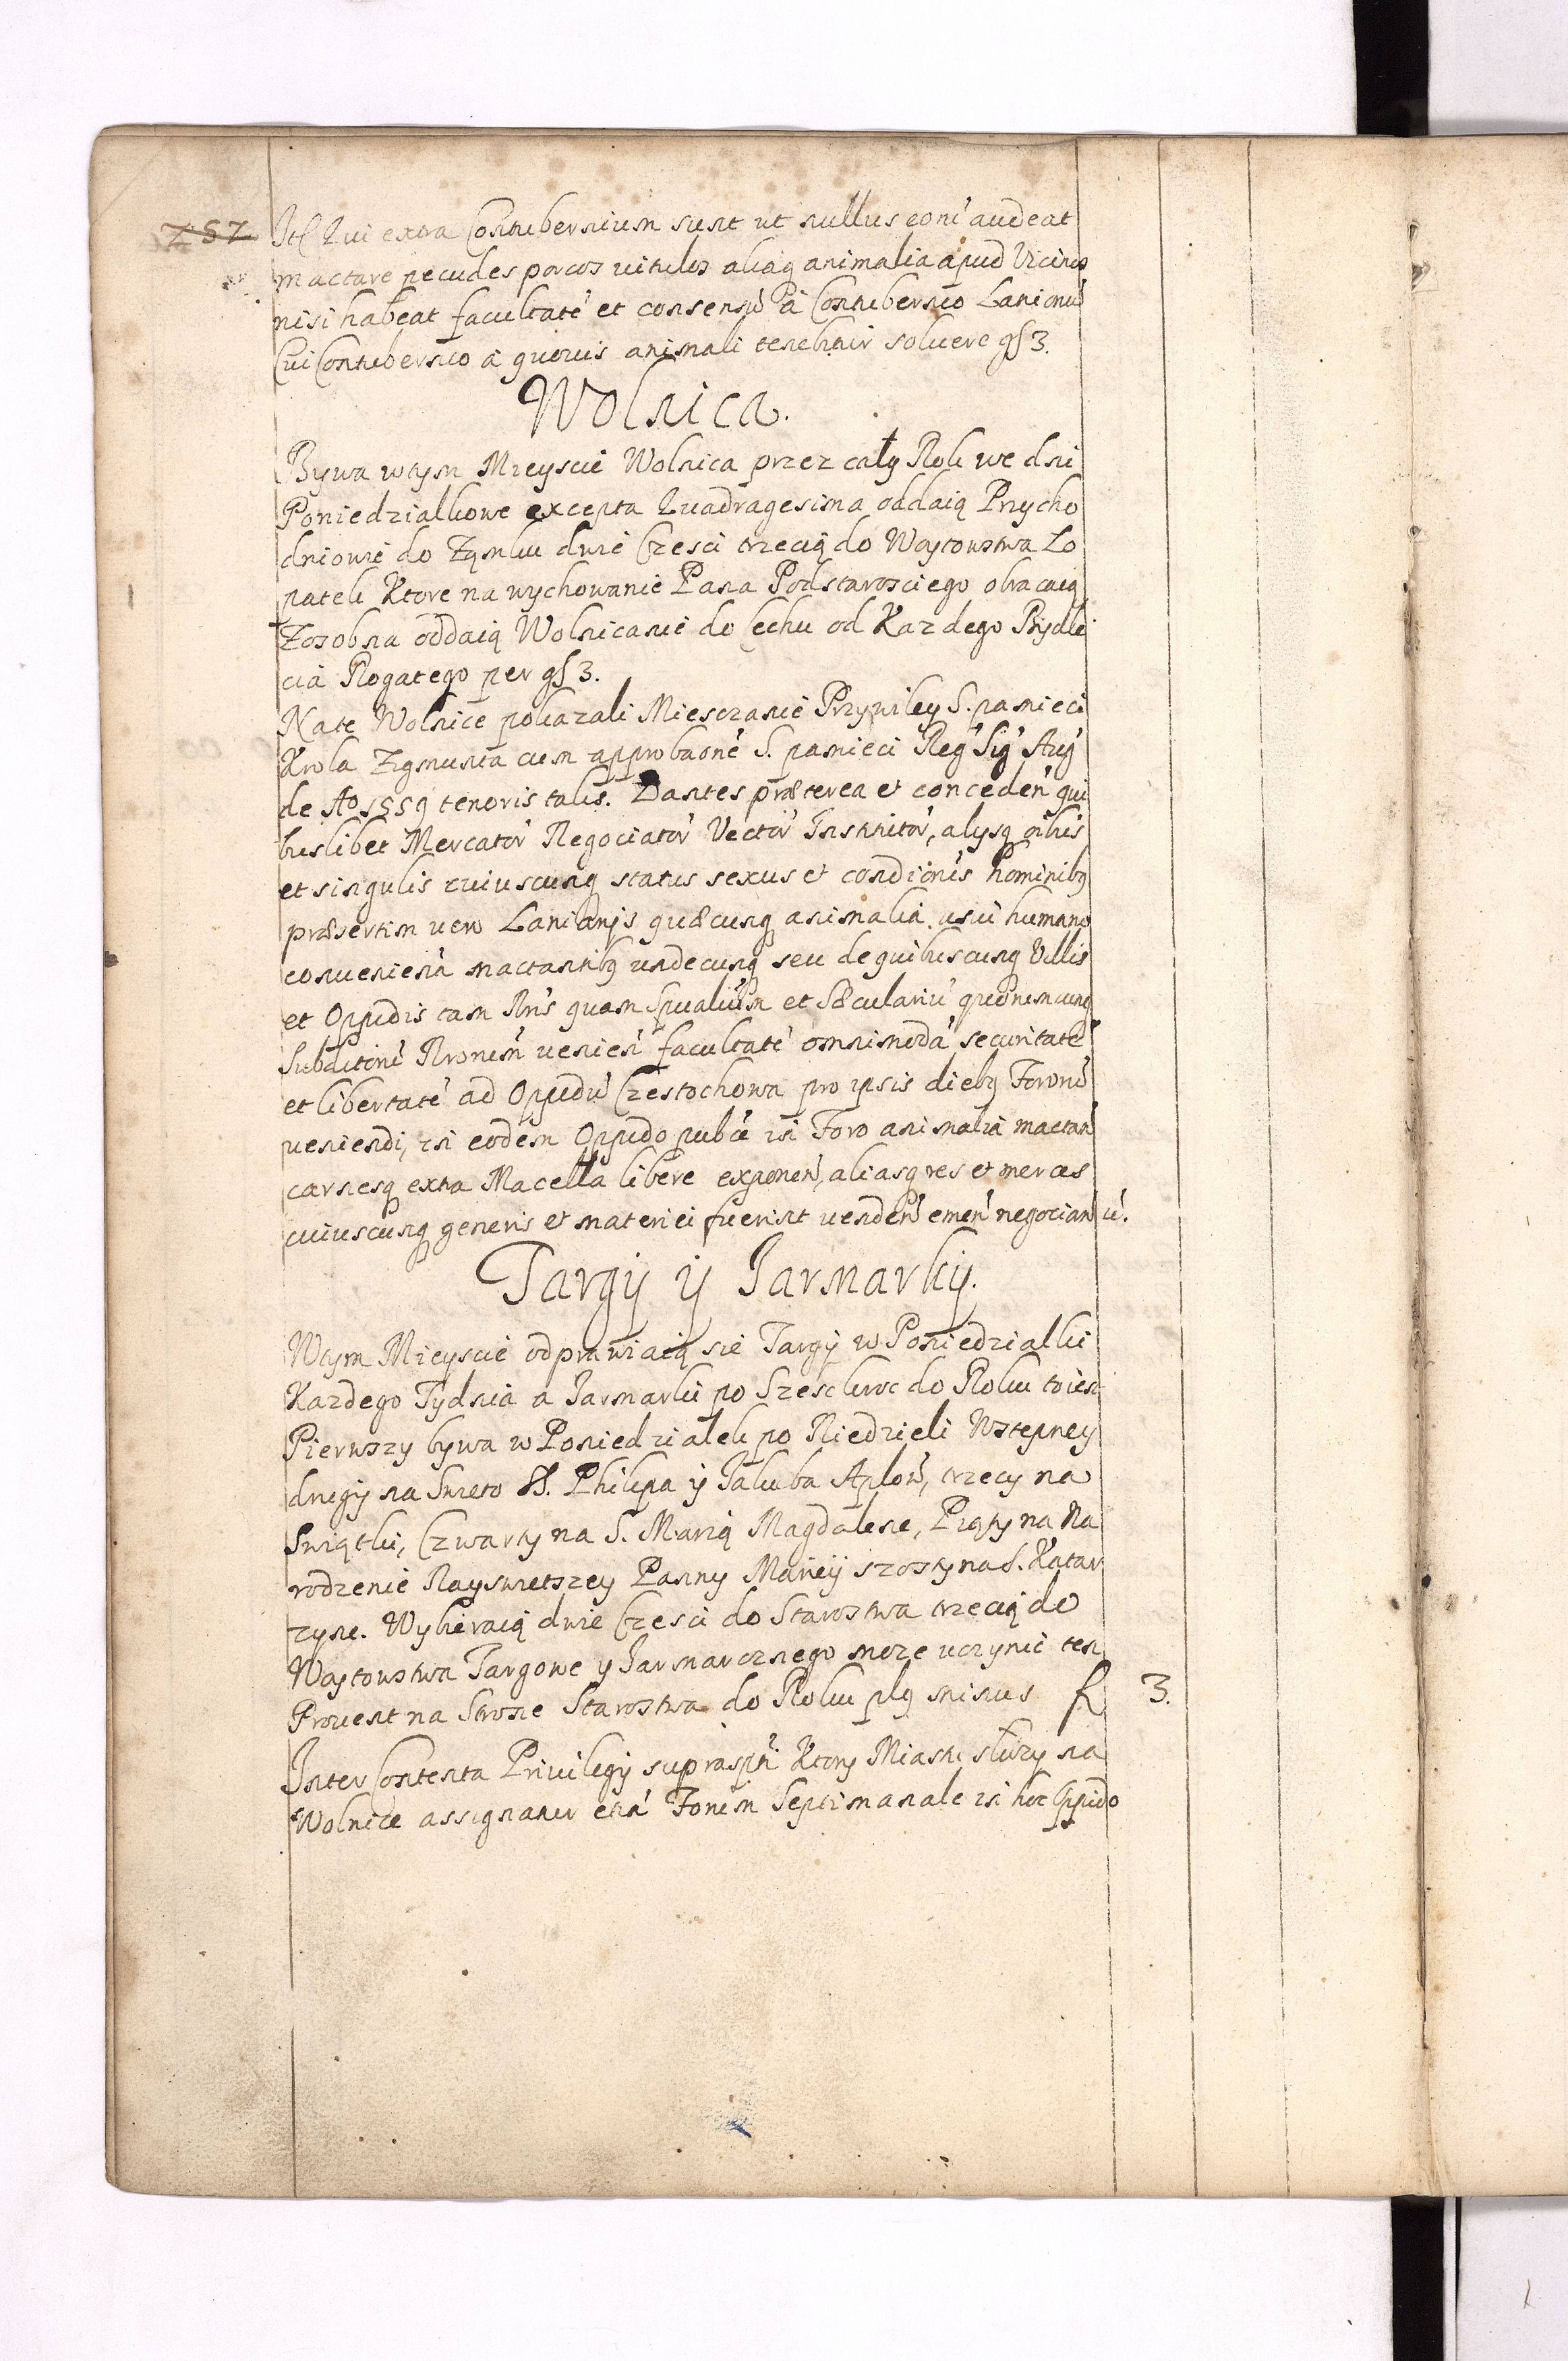 257
Itē Qui extra Contubernium sunt ut nullus eorū audeat
mactare pecudes porcos vitulos aliaq animalia apud Vicinos
nisi habeat facultatē et consensū à Contubernio Lanionū
Cui Contubernio à quovis animali tenebitur solvere gſ 3.
Wolnica.
Bywa wtym Mieyscie Wolnica przez cały Rok we dni
Poniedziałkowe excepta Quadragesima oddaią Przycho
dniowie do Zamku dwie Czesci trzecią do Woytowstwa Lo
patek Ktore na wychowanie Pana Podstarosciego obracaią
Zosobna oddaią Wolnicanie do Cechu od Kazdego Bydle
cia Rogatego per gſ 3.
Nate Wolnice pokazali Miesczanie Przywiley S. pamieci
Krola Zigmunta cum approbaone S. pamieci Reg Sig Aug
de Ao 1559 tenoris talis. Dantes præterea et conceden̄ qui
buslibet Mercator̄ Negociator̄ Vector̄ Institor̄, alysq oībus
et singulis cuiuscunq status sexus et condicionis hominibq
præsertim vero Lanianis quæcunq animalia usui humano
convenien̄ mactantibq undecunq seu de quibuscunq Villis
et Oppidis tam Rn̄s quam Spualium et Sæculariū quorumcunq
Subditorū Nrorum venien̄ facultatē omnimodā securitatē
et libertatē ad Oppidū Czestochowa pro ipsis diebq Fororū
veniendi, in eodem Oppido publice in Foro animalia mactan̄
carnesq extra Macella libere exponen̄, aliasq res et merces
cuiuscunq generis et materiei fuerint venden̄ emen̄ negocian̄
Targy y Jarmarky.
Wtym Mieyscie odprawiaią sie Targy w Poniedziałki
Kazdego Tydnia a Jarmarki po Szesckroc do Roku to iest
Pierwszy bywa w Poniedziałek po Niedzieli Wstepney
drugy na Swieto SS. Philipa y Jakuba Aplow, trzecy na
Swiątki, Czwarty na S. Marią Magdalene, Piąty na Na
rodzenie Nayswietszey Panny Mariey szosty na S. Katar
zyne. Wybieraią dwie Czesci do Starostwa trzecią do
Woytowstwa Targowe y Jarmarcznego moze uczynic ten
Provent na Strone Starostwa do Roku plq minus f 3.
Inter Contenta Privilegij suprascpti Ktory Miastu słuzy na
Wolnice assignatur etiā Forum Septimanale in hoc Oppido